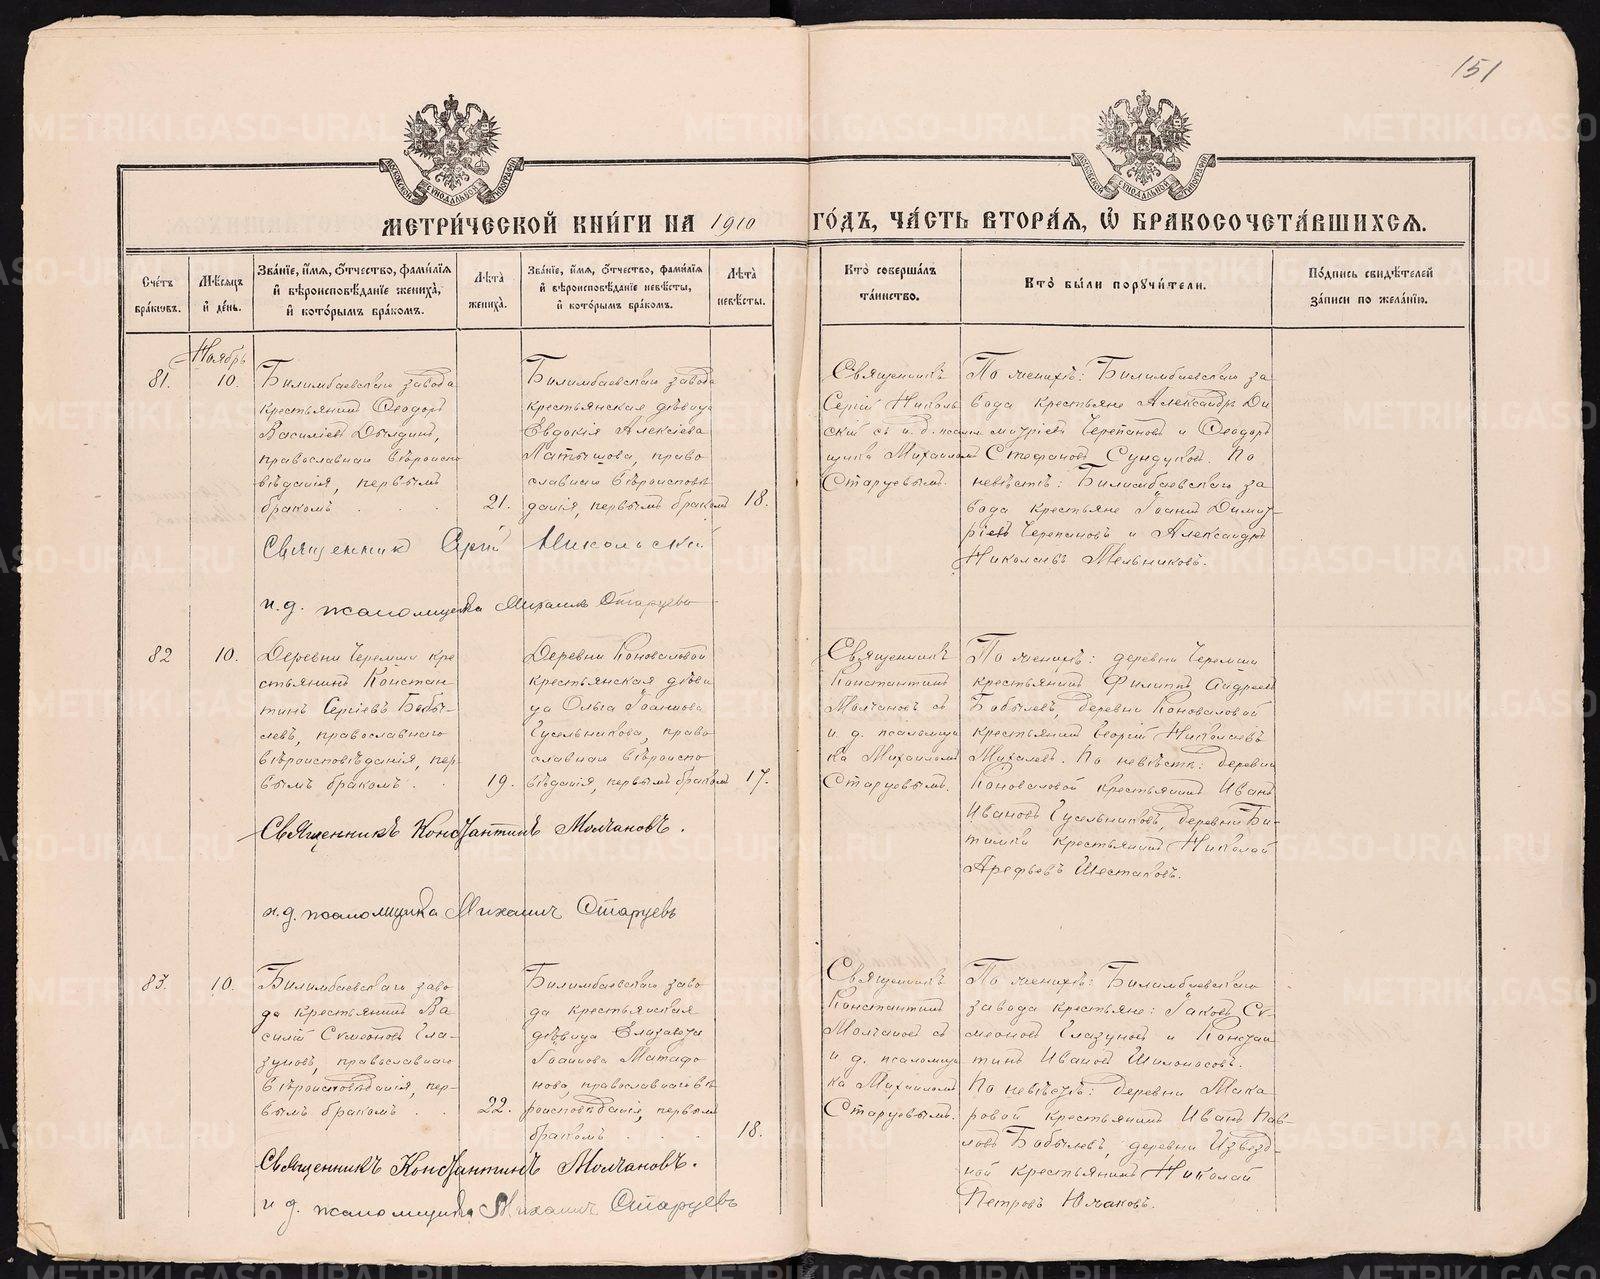 151
МЕТРИ́ЧЕСКОЙ КНИ́ГИ НА 1910 ГО́ДЪ, ЧА́СТЬ ВТОРА́Я, Ѽ БРАКОСОЧЕТА́ВШИХСЯ.
Сче́тъ бра́ковъ.
Мѣ́сяцъ и҆ де́нь.
Зва́нїе, и҆́мя, ѻ҆́тчество, фами́лїя и҆ вѣроисповѣ́данїе жениха̀, и҆ кото́рымъ бра́комъ.
Лѣ́та жениха̀.
Зва́нїе, и҆́мя, ѻ҆́тчество, фами́лїя и҆ вѣроисповѣ́данїе невѣ́сты, и҆ кото́рымъ бра́комъ.
Лѣ́та невѣ́сты.
Кто̀ соверша́лъ та́инство.
Кто̀ бы́ли порꙋчи́тели.
По́дпись свидѣ́телей за́писи по жела́нїю.
Ноябрь
81.
10.
Билимбаевскаго завода
крестьянинъ Ѳеодоръ
Васильевъ Дылдинъ,
православнаго вѣроиспо
вѣданія, первымъ
бракомъ . . .
21.
Билимбаевскаго завода
крестьянская дѣвица
Евдокія Алексіева
Латышова, право
славнаго вѣроисповѣ
данія, первымъ бракомъ
18.
Священникъ
Сергій Николь
скій съ и. д. псалом
щика Михаиломъ
Старцевымъ.
По женихѣ: Билимбаевскаго за
вода крестьяне Александръ Ди
митріевъ Черепановъ и Ѳеодоръ
Стефановъ Сундуковъ. По
невѣстѣ: Билимбаевскаго за
вода крестьяне Іоаннъ Димит
ріевъ Черепановъ и Александръ
Николаевъ Мельниковъ.
Священник Сергій Никольскій
и. д. псаломщика Михаилъ Старцевъ
82
10.
Деревни Черемши кре
стьянинъ Констан
тинъ Сергіевъ Бобы-
левъ, православнаго
вѣроисповѣданія, пер-
вымъ бракомъ . .
19.
Деревни Коноваловой
крестьянская дѣви
ца Ольга Іоаннова
Гусельникова, право
славнаго вѣроиспо
вѣданія, первымъ бракомъ
17.
Священникъ
Константинъ
Молчановъ съ
и. д. псаломщи
ка Михаиломъ
Старцевымъ.
По женихѣ: деревни Черемши
крестьянинъ Филиппъ Андреевъ
Бобылевъ, деревни Коноваловой
крестьянинъ Георгій Николаевъ
Михалевъ. По невѣстѣ: деревни
Коноваловой крестьянинъ Иванъ
Ивановъ Гусельниковъ, деревни Би-
тимки крестьянинъ Николай
Арефьевъ Шестаковъ.
Священникъ Константинъ Молчановъ.
и. д. псаломщика Михаилъ Старцевъ
83.
10.
Билимбаевскаго заво
да крестьянинъ Ва
силій Симеоновъ Гла-
зуновъ, православнаго
вѣроисповѣданія, пер-
вымъ бракомъ . .
22.
Билимбаевскаго заво
да крестьянская
дѣвица Елизавета
Іоаннова Матафо
нова, православнаго вѣ
роисповѣданія, первымъ
бракомъ . . .
18.
Священникъ
Константинъ
Молчановъ съ
и. д. псаломщи
ка Михаиломъ
Старцевымъ.
По женихѣ: Билимбаевскаго
завода крестьяне: Іаковъ Си
меоновъ Глазуновъ и Констан
тинъ Ивановъ Шилоносовъ.
По невѣстѣ: деревни Мака
ровой крестьянинъ Иванъ Пав-
ловъ Бобылевъ, деревни Извезд-
ной крестьянинъ Николай
Петровъ Южаковъ.
Священникъ Константинъ Молчановъ.
и д. псаломщика Михаилъ Старцевъ
METRIKI.GASO-URAL.RU